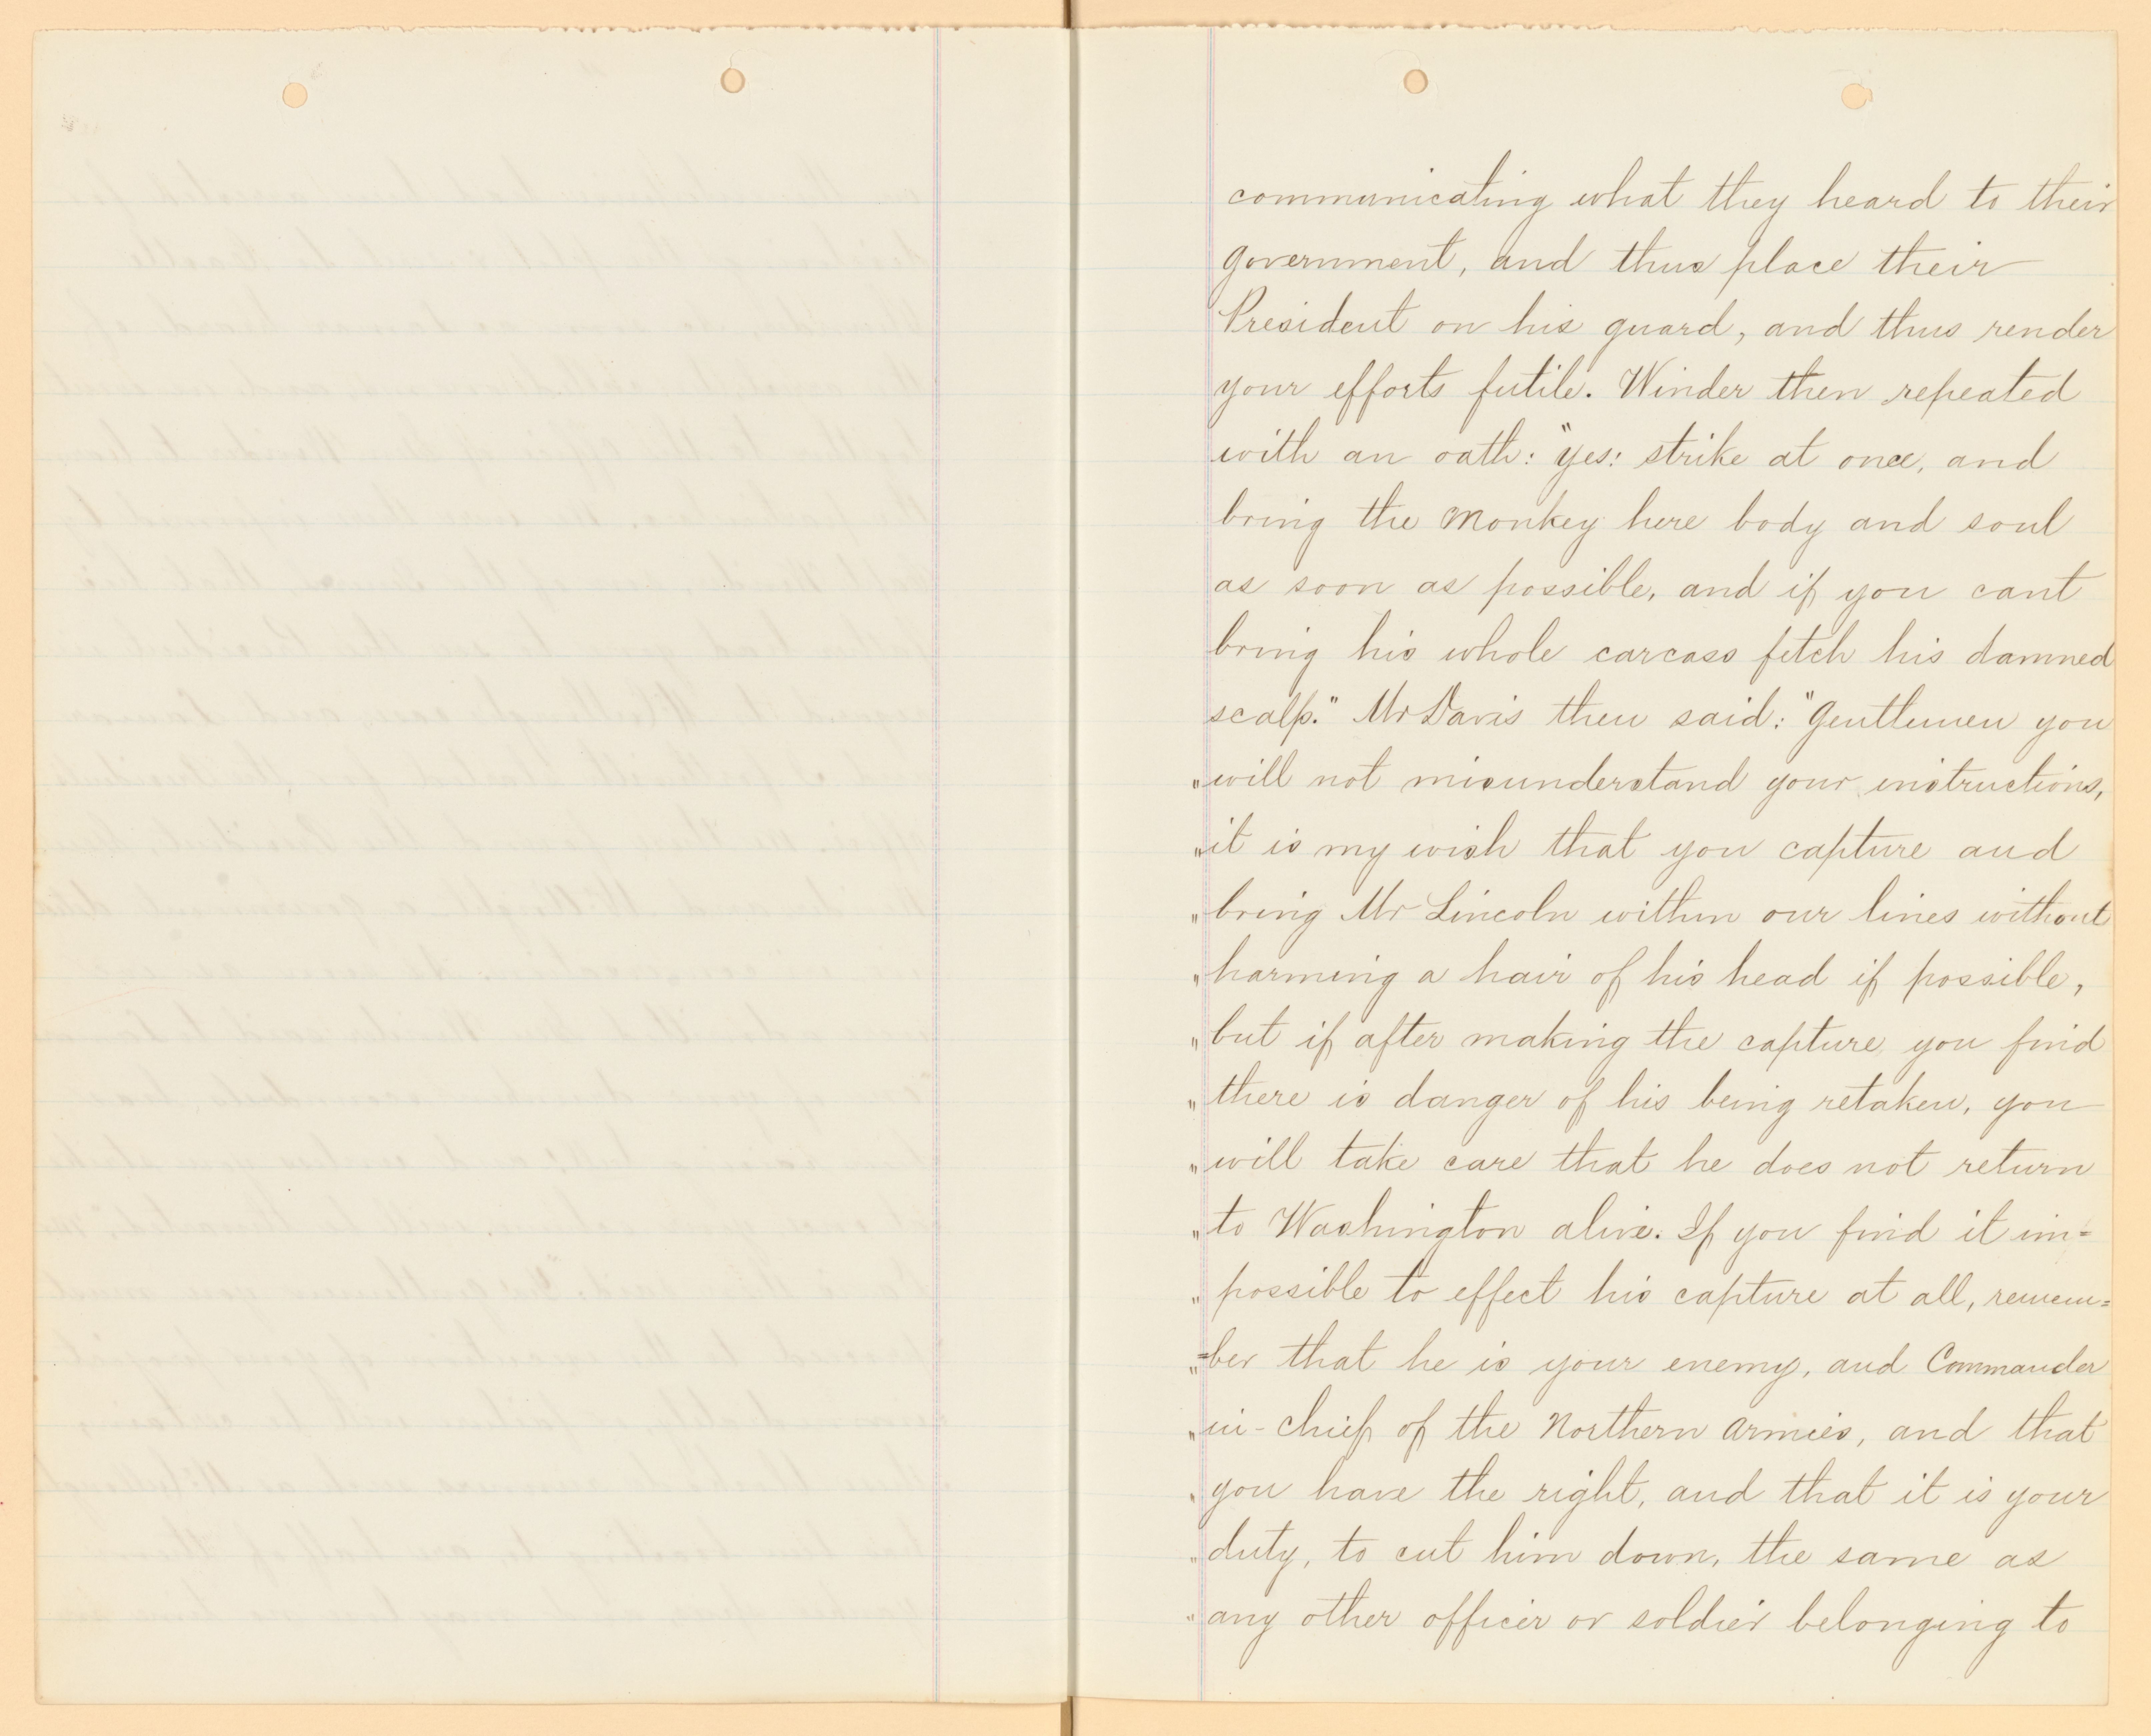 communicating what they heard to their
government, and thus place their
President on his guard, and thus render
your efforts futile. Winder then repeated
with an oath: "yes: strike at once, and
bring the monkey here body and soul
as soon as possible, and if you cant
bring his whole carcass fetch his damned
scalp." Mr Davis then said: "Gentlemen you
" will not misunderstand your instructions,
" it is my wish that you capture and
" bring Mr Lincoln within our lines without
" harming a hair of his head if possible,
" but if after making the capture you find
" there is danger of his being retaken, you
" will take care that he does not return
" to Washington alive. If you find it im=
" possible to effect his capture at all, remem=
" =ber that he is your enemy, and Commander
" in-chief of the Northern Armies, and that
" you have the right, and that it is your
" duty, to cut him down, the same as
" any other officer or soldier belonging to